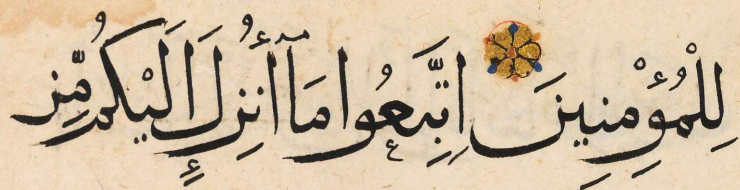 لِلْمُؤْمِنِينَ اِتَّبِعُوا مَآ أُنْزِلَ إِلَيْكُمْ مِّن